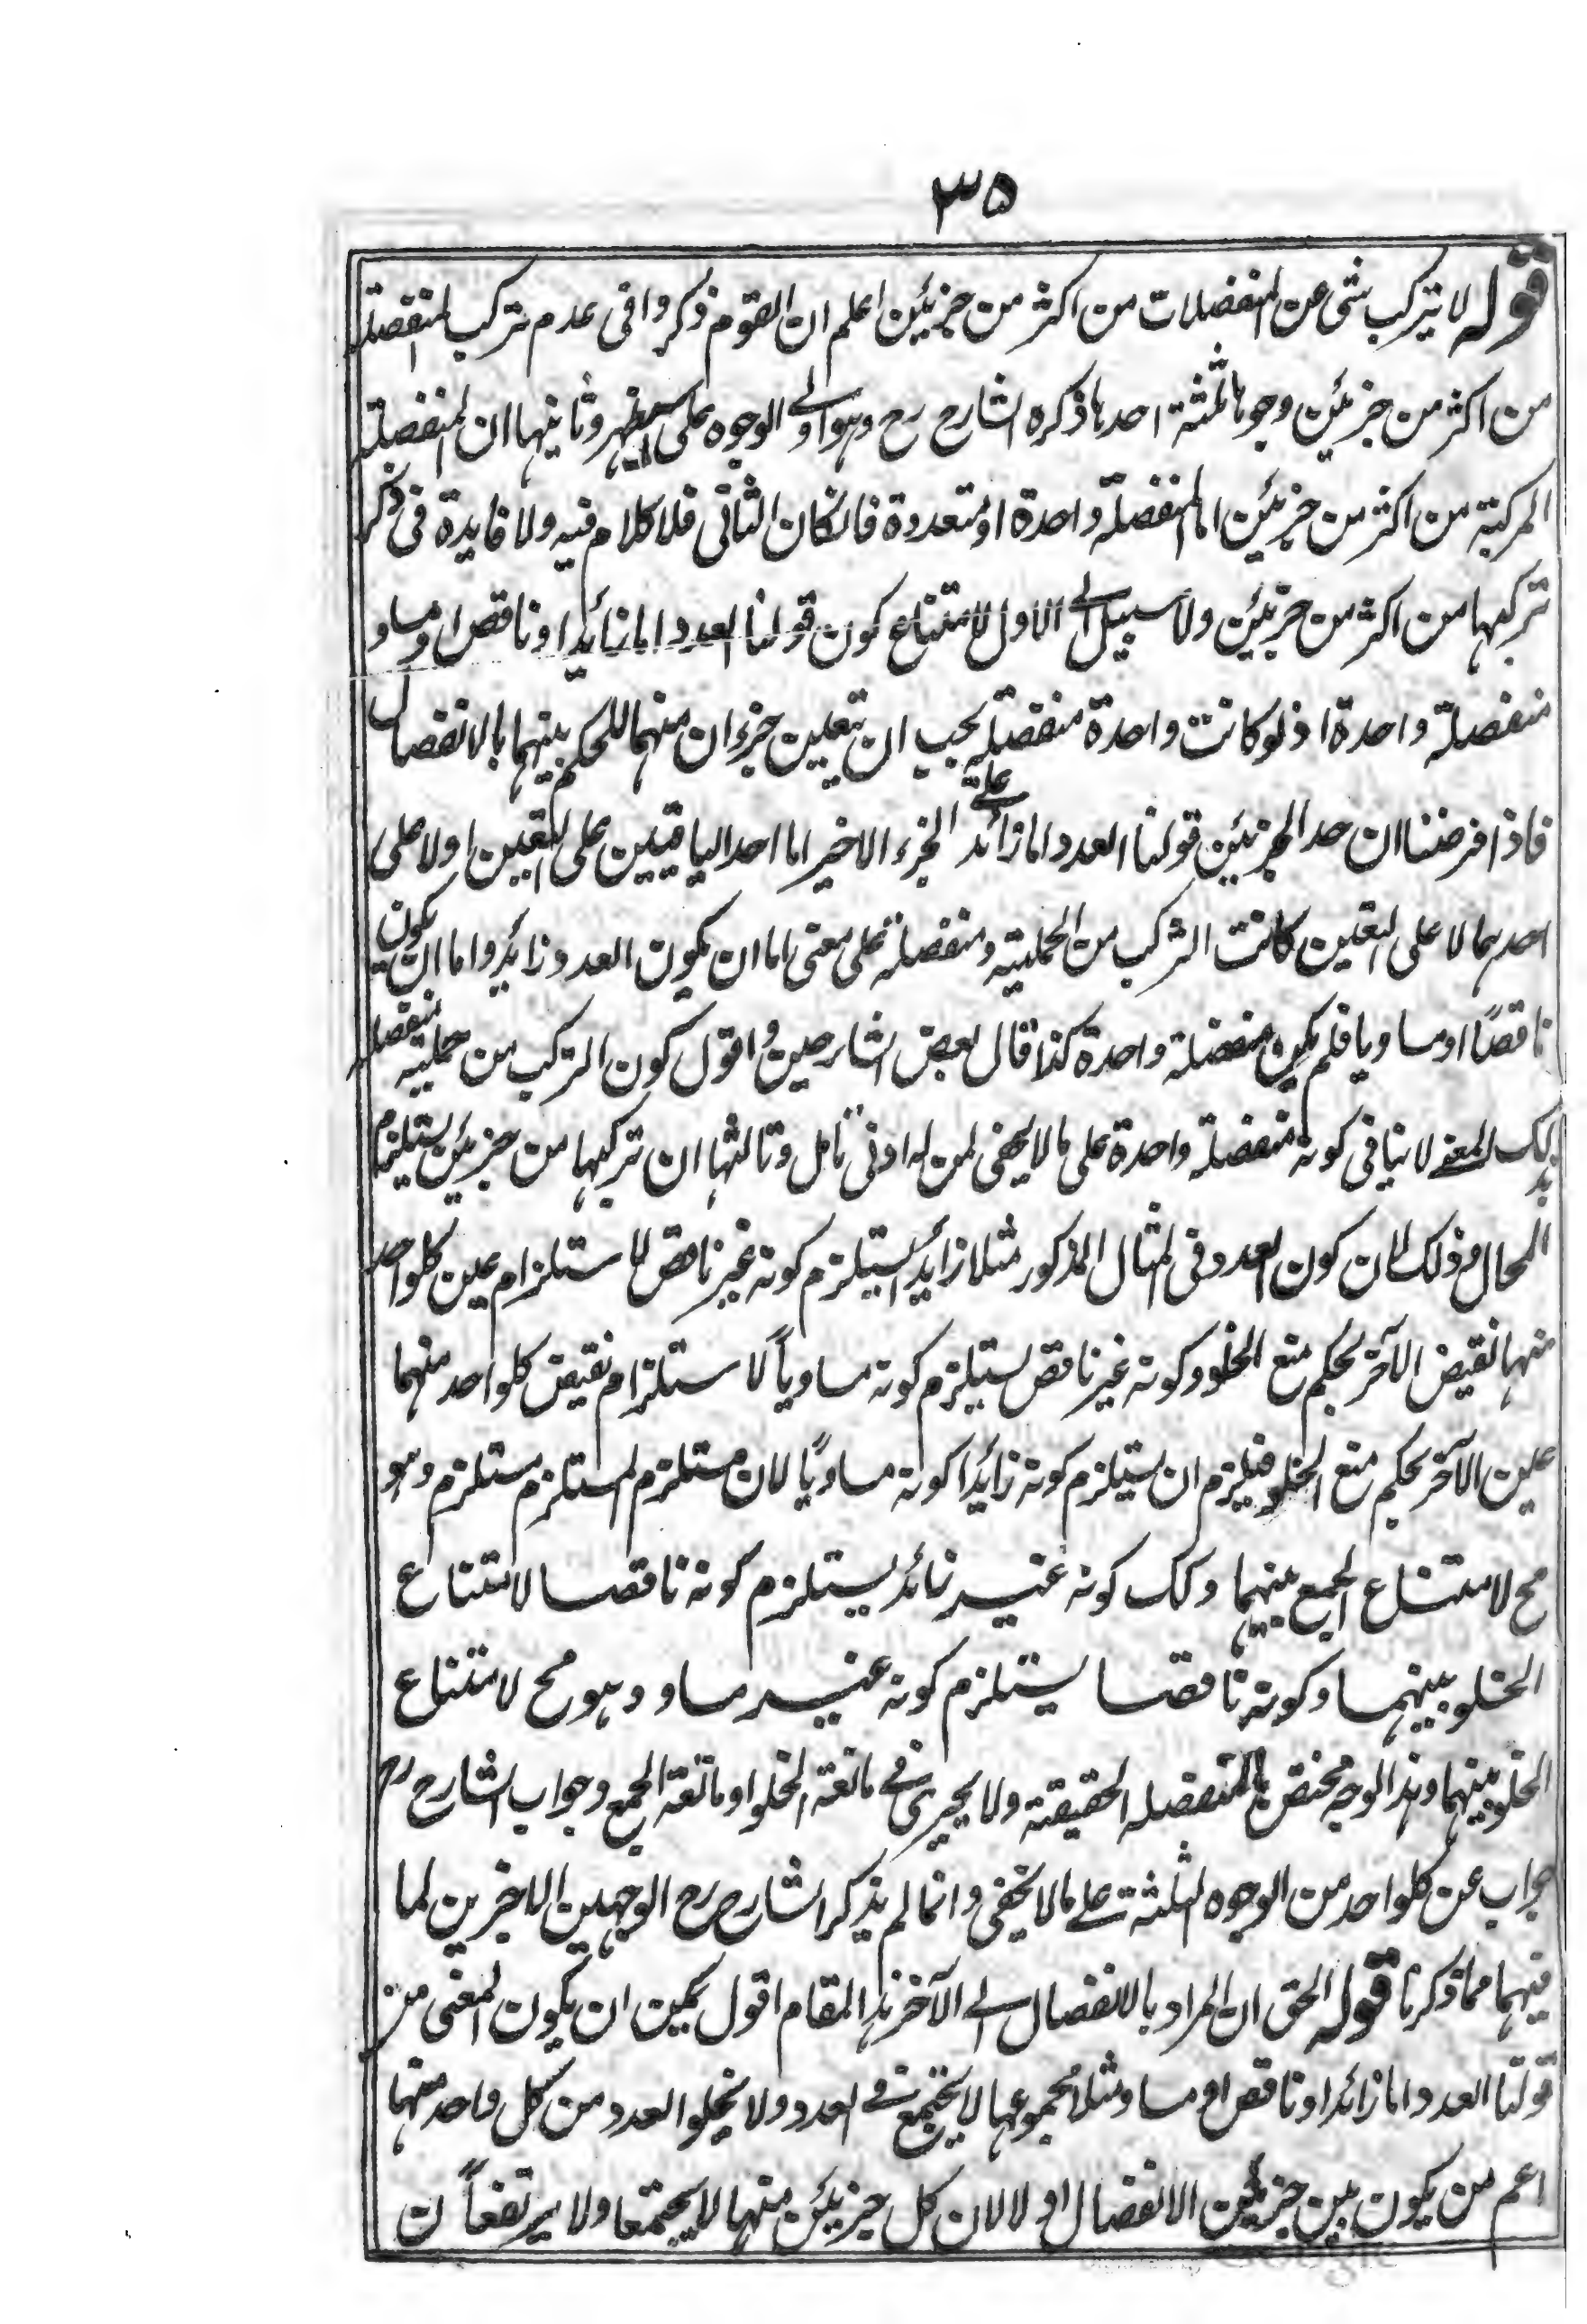 ٣٥
قوله لا يتركب شئ من المنفصلات من اكثر من جزئين اعلم ان القوم ذكروا فى عدم تركب المنفصلة
من اكثر من جزئين وجوها ثلثة احدها ذكره الشارح رح وهو اولى الوجوه على سيظهر وثانيها ان المنفصلة
المركبة من اكثر من جزئين اما منفصلة واحدة او متعددة فانكان الثانى فلا كلام فيه ولا فايدة فى ذكر
تركبها من اكثر من جزئين ولا سبيل الى الاول لامتناع كون قولنا العدد اما زائد او ناقص او مساو
منفصلة واحدة اذ لو كانت واحدة منفصلة يجب ان يتعين جزءان منهما للحكم بينهما بالانفصال
فاذا فرضنا ان احد الجزئين قولنا العدد اما زائد عليه الجزء الاخير اما احد الباقيين على التعين او لا على
احدهما لا على التعين كانت التركب من الحملية ومنفصلة على معنى اما ان يكون العدد زائد واما ان يكون
ناقصًا او مساويا فلم يكن منفصلة واحدة كذا قال بعض الشارحين واقول كون التركب من حملية منفصلة
بذلك المعنے لا ينافى كونه منفصلة واحدة على ما لا يخفى لمن له ادنى تامل وثالثها ان تركبها من جزئين يستلزم
المحال وذلك لان كون العدد فى المثال المذكور مثلا زايدا يستلزم كونه غير ناقص لاستلزام عين كلواحد
منهما نقيض الآخر بحكم منع الخلو وكونه غير ناقص يستلزم كونه مساوياً لاستلزام نقيض كلواحد منهما
عين الآخر بحكم منع الخلو فيلزم ان يستلزم كونه زائدا كونه مساويًا لان مستلزم المستلزم مستلزم وهو
مح لامتناع الجمع بينهما وكك كونه غير زائد يستلزم كونه ناقصا لامتناع
الخلو بينهما وكونه ناقصا يستلزم كونه غير مساو وهو مح لامتناع
الخلو بينهما وهذا الوجه مختص بالمنفصله الحقيقته ولا يجرى فے مانعة الخلو او مانعة الجمع وجواب الشارح رح
جواب عن كلواحد من الوجوه الثلثة على ما لا يخفى وانما لم يذكر الشارح رح الوجهين الاخرين لما
فيهما مما ذكرنا قوله الحق ان المراد بالانفصال الے الآخر هذا المقام اقول يمكن ان يكون المعنى من
قولنا العدد اما زائد او ناقص او مساو مثلا مجموعها لا يجتمع فے العدد ولا يخلو العدد من كل واحد منها
اعم من يكون بين جزئين الانفصال او لا لان كل جزئين منها لا يجتمعا ولا يرتفعاً ن
Google